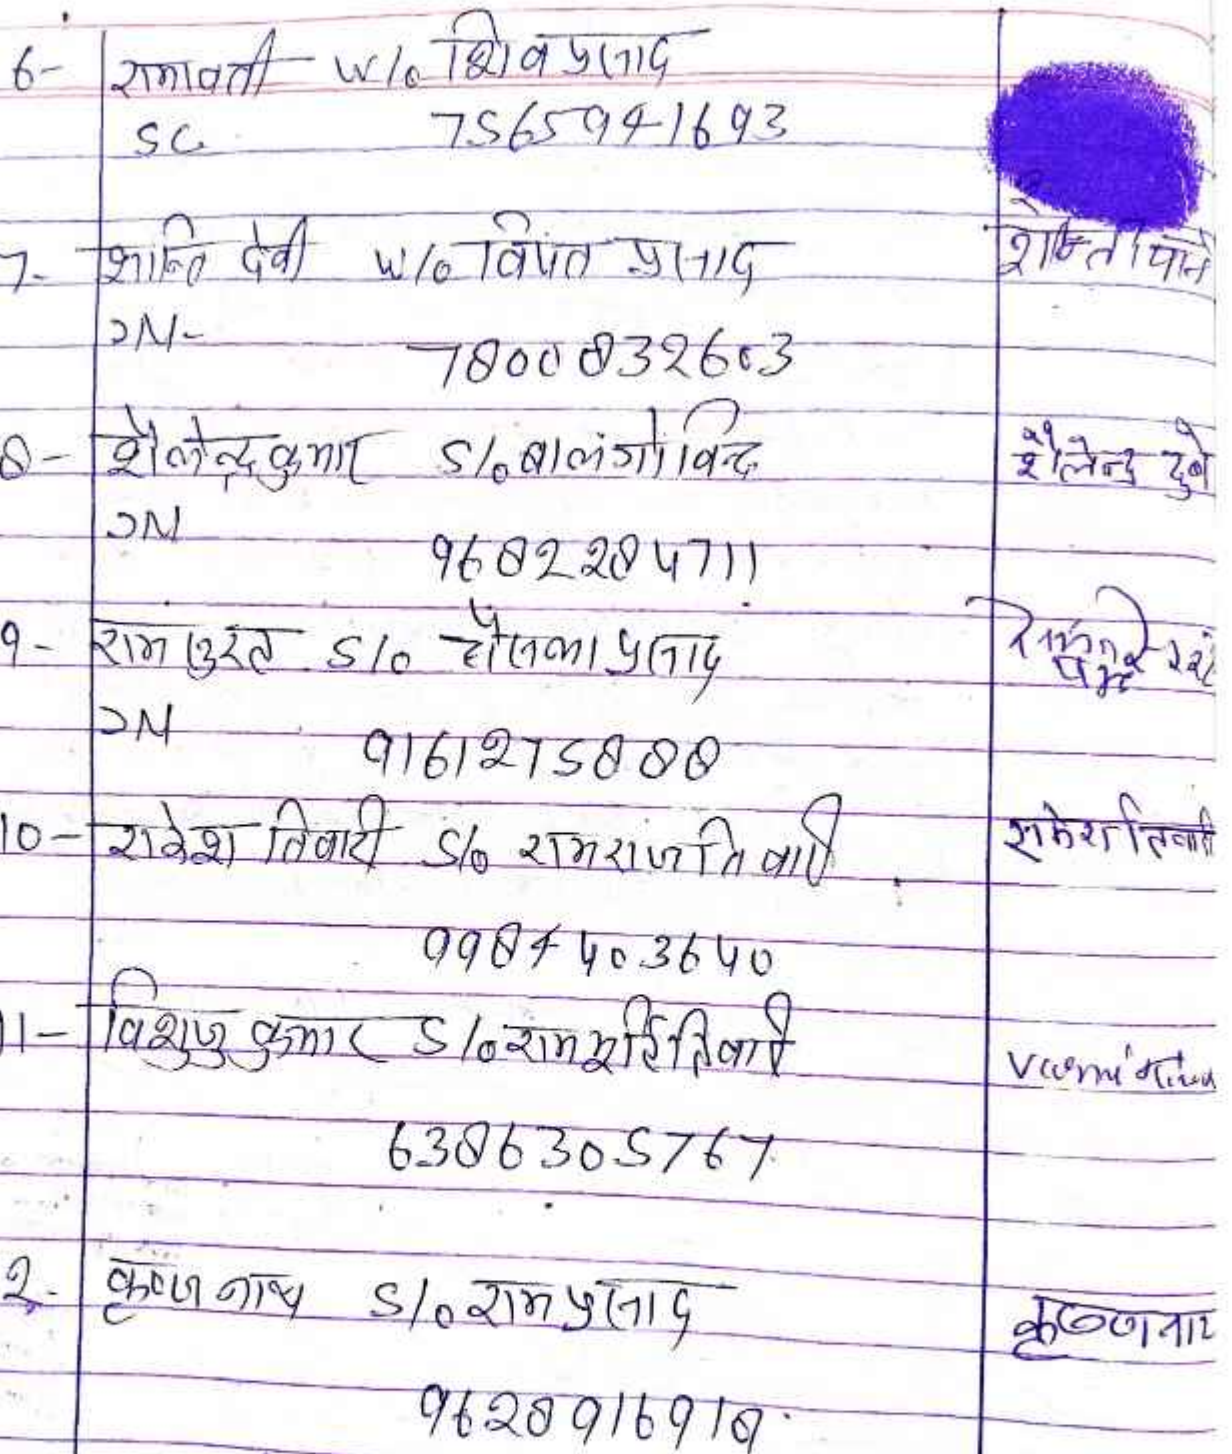 6- रामावती W/o शिव प्रसाद
SC 7565941693
7- शान्ति देवी W/o विपत प्रसाद
JN- 7800832603
8- शैलेन्द्र कुमार S/o बालगोविन्द शैलेन्द्र दुबे
JN 9682284711
9- राम सुरत S/o प्रसाद
JN 9161275888
10- राकेश तिवारी S/o रामराज तिवारी राकेश तिवारी
9984403640
11- कुमार S/o राममूर्ति तिवारी
6386305767
2- कृष्ण नाथ S/o राम प्रसाद कृष्णनाथ
9628916918